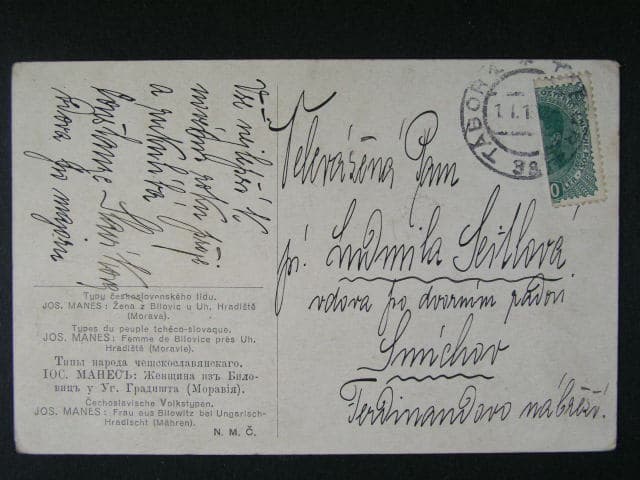 Vše nejlepší k
novému roku přeje
a ruku líbá
Konstance
vdova po majoru
Typy československého lidu.
JOS. MANES: Žena z Bílovic u Uh. Hradiště
(Morava).
Types du peuple tchéco-slovaque.
JOS. MANES: Femme de Bilovice près Uh.
Hradiště (Moravie).
Типы народа чешскославянскаго.
ІОС. МАНЕСЪ: Женщина изъ Било-
вицъ у Уг. Градишта (Моравія).
Čechoslavische Volkstypen.
JOS. MANES: Frau aus Bilowitz bei Ungarisch-
Hradischt (Mähren).
N. M. Č.
TÁBOR
Velevážená Paní
pí. Ludmila Seitlová
vdova po dvorním radovi
Smíchov
Ferdinandovo nábřeží.